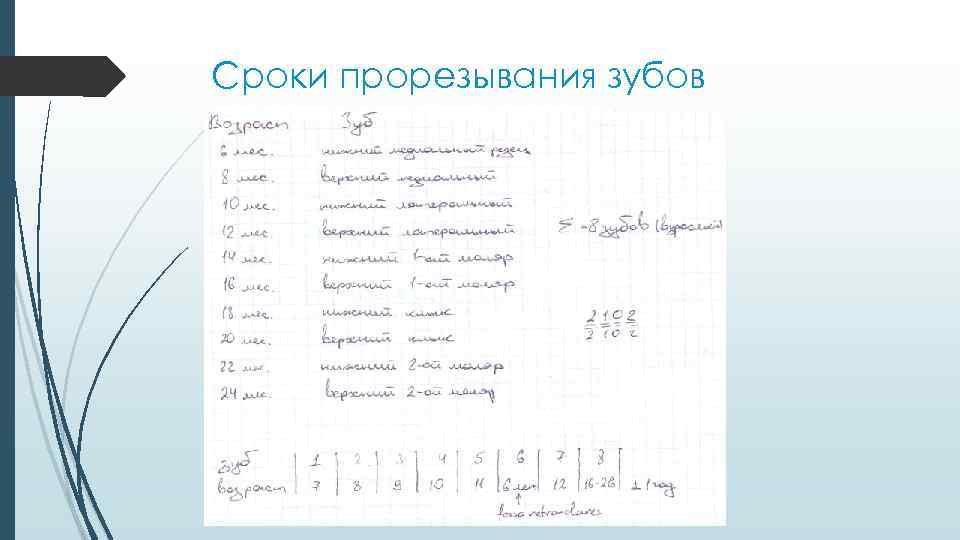 Сроки прорезывания зубов
Возраст Зуб
6 мес. нижний медиальный резец
8 мес. верхний медиальный
10 мес. нижний латеральный
12 мес. верхний латеральный
Σ -8 зубов
14 мес. нижний 1-ый моляр
16 мес. верхний 1-ый моляр
18 мес. нижний клык
2 1 0 2
2 1 0 2
20 мес. верхний клык
22 мес. нижний 2-ой моляр
24 мес. верхний 2-ой моляр
Зуб | 1 | 2 | 3 | 4 | 5 | 6 | 7 | 8 |
возраст | 7 | 8 | 9 | 10 | 11 | 6 лет | 12 | 16-26 | ± 1 год
↑